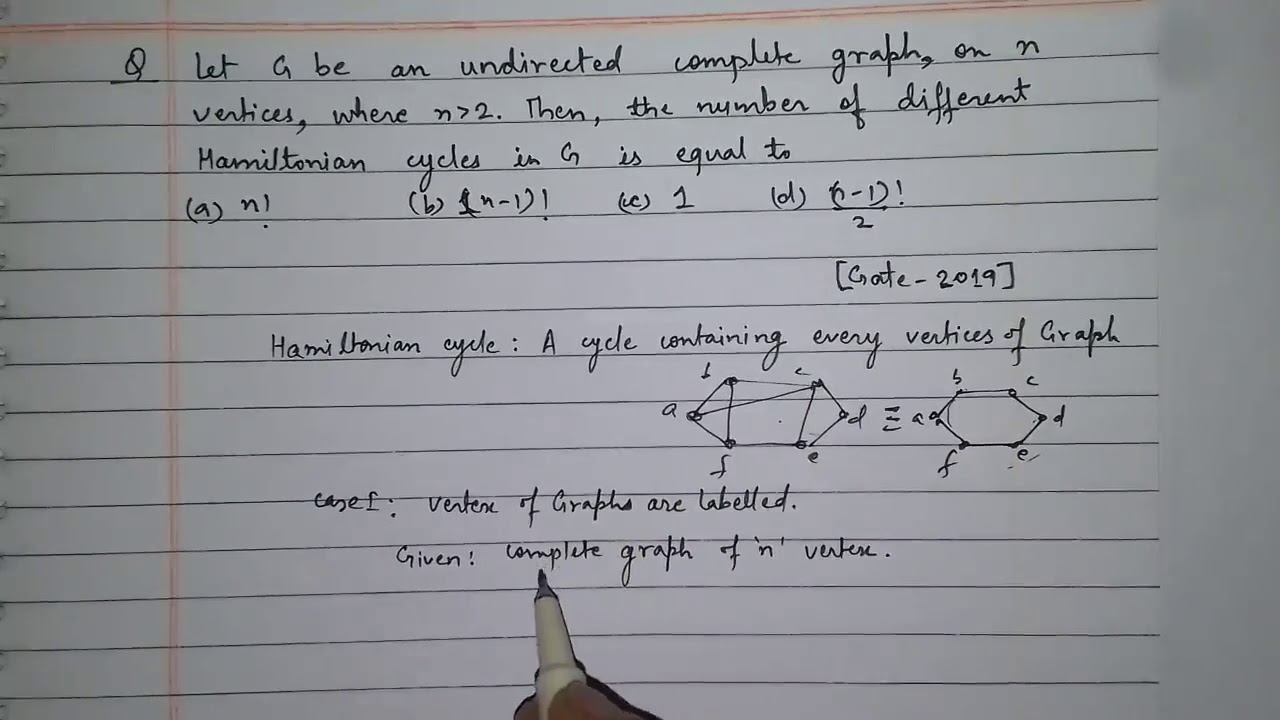 Q Let G be an undirected complete graph, on n
vertices, where n>2. Then, the number of different
Hamiltonian cycles in G is equal to
(a) n! (b) (n-1)! (c) 1 (d) (n-1)!/2
[Gate-2019]
Hamiltonian cycle: A cycle containing every vertices of Graph
b c b c
a d ≡ a d
f e f e
case1: vertex of Graphs are labelled.
Given: complete graph of 'n' vertex.